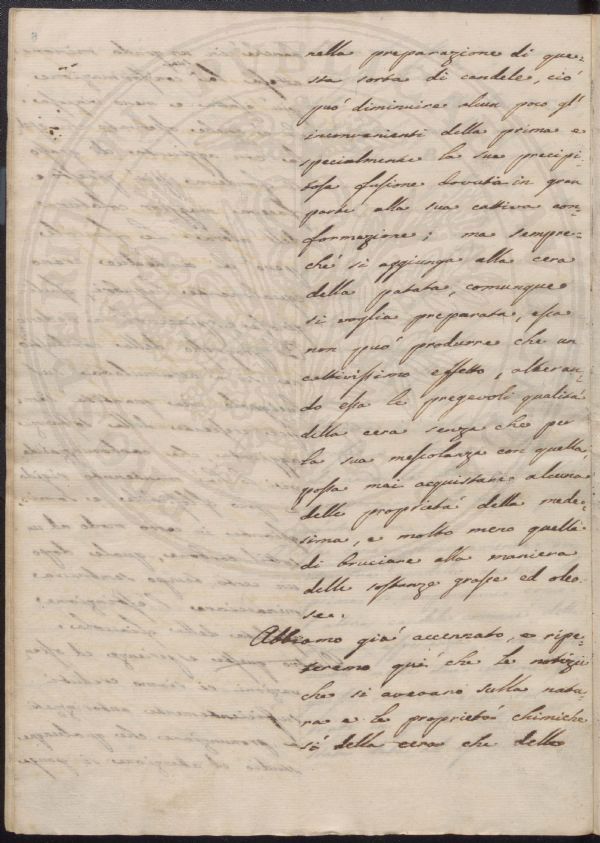 nella preparazione di que-
sta sorta di candele, ció
può diminuire alcun poco gl'
inconvenienti della prima e
specialmente la sua precipi-
tosa fusione dovuta in gran
parte alla sua cattiva con-
formazione; ma sempre-
ché si aggiunga alla cera
della patata, comunque
si voglia preparata, essa
non può produrre che un
cattivissimo effetto, alteran-
do essa le pregevoli qualità
della cera senza che per
la sua mescolanza con quella
possa mai acquistare alcuna
delle proprietà della mede-
sima, e molto meno quella
di bruciare alla maniera
delle sostanze grasse ed oleo-
se.
Abbiamo giá accennato, e ripe-
teremo quì che le notizie
che si avevano sulla natu-
ra e le proprietà chimiche
sì della cera che delle